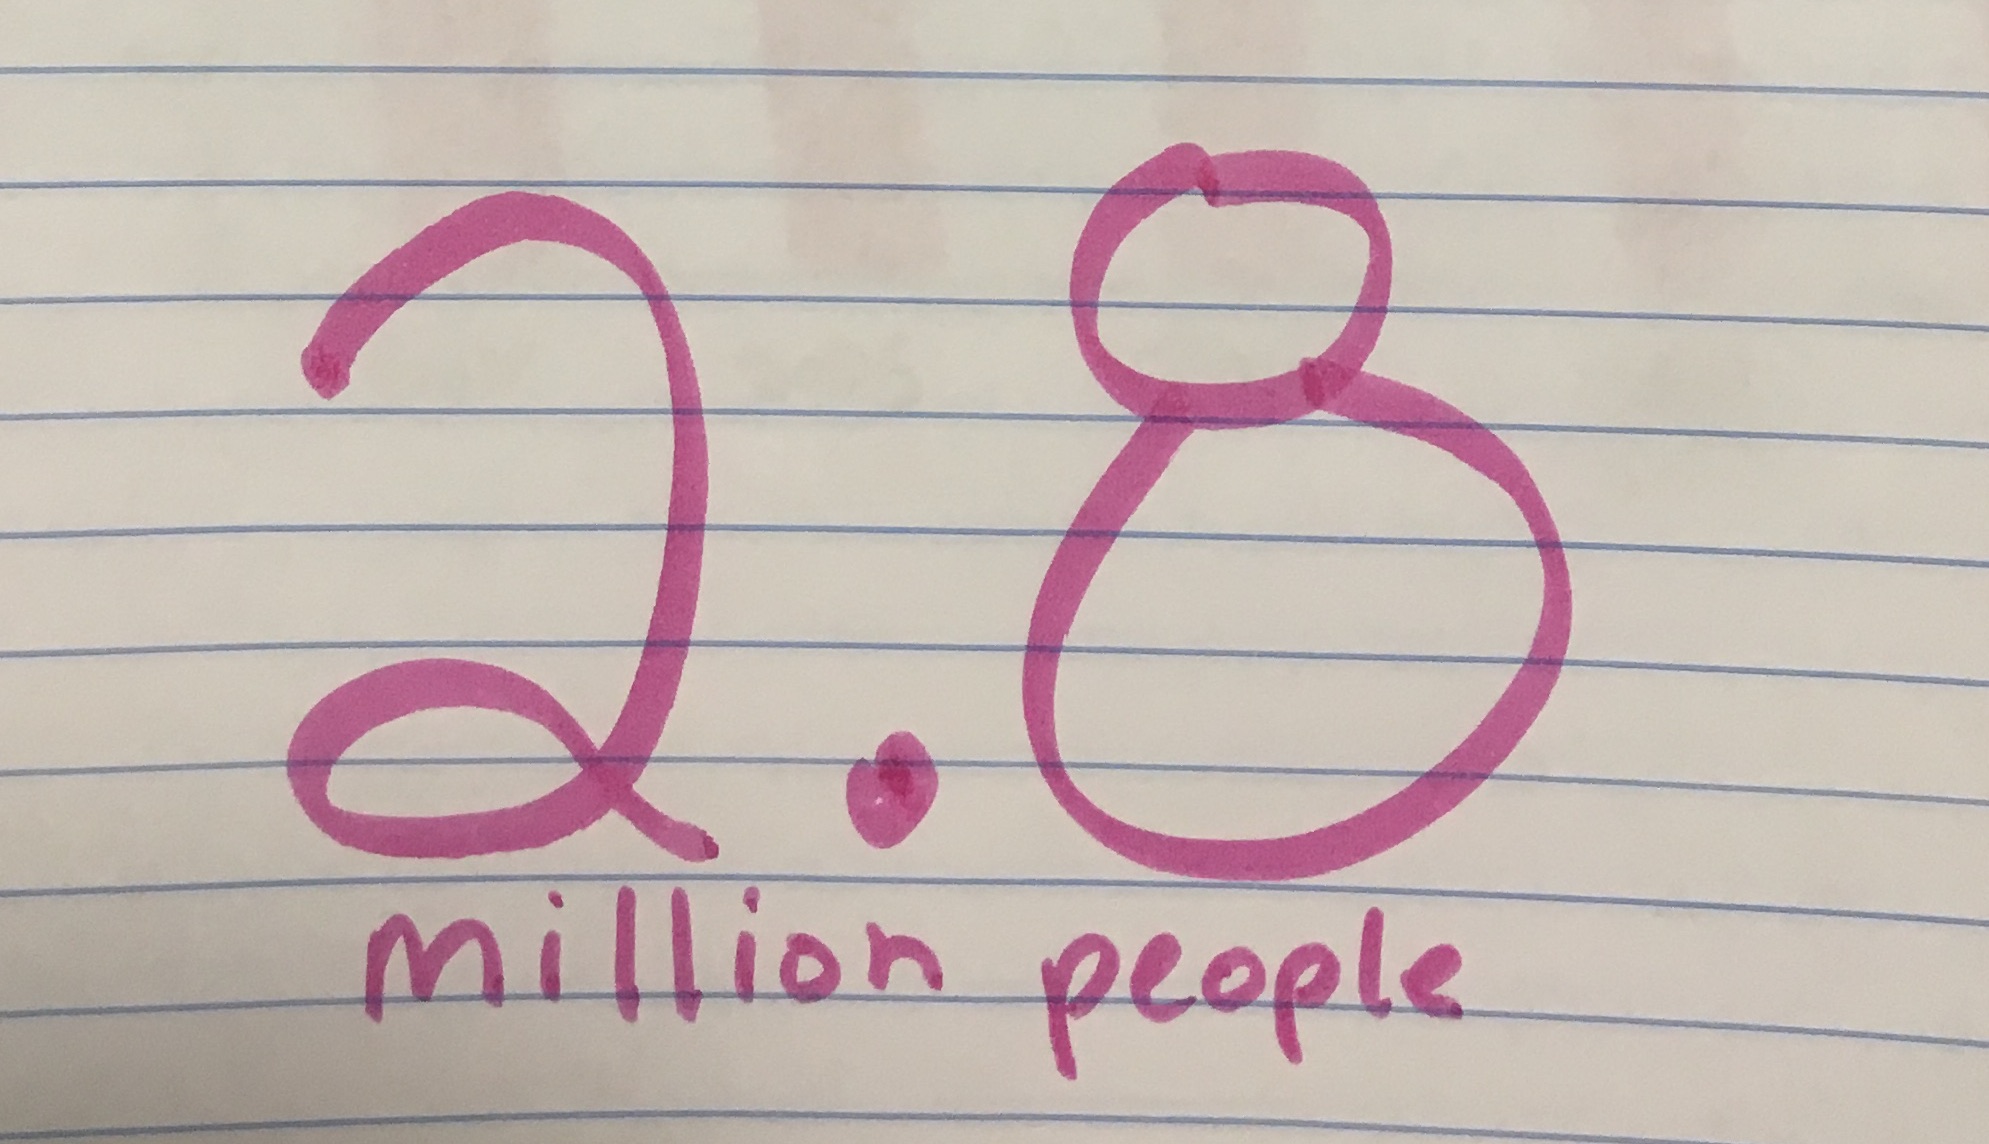 2.8
million people